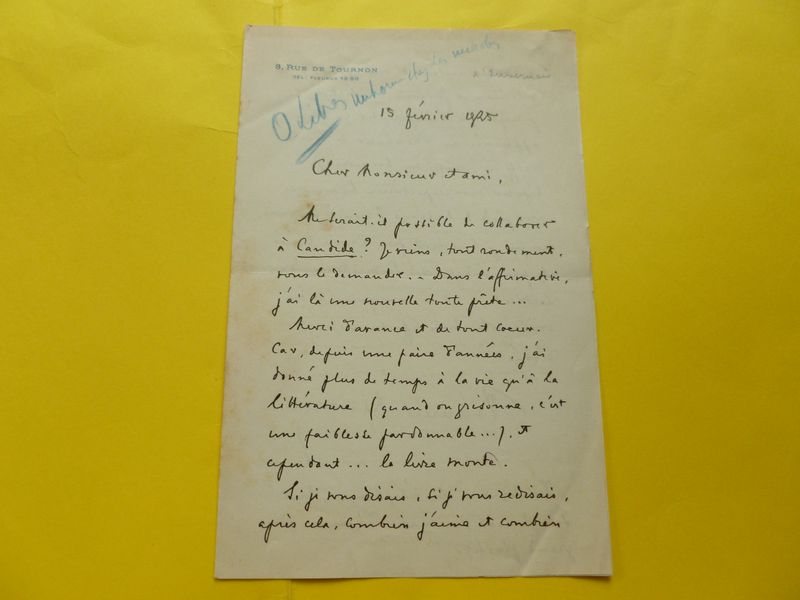 8, RUE DE TOURNON
TEL: FLEURUS
O. Libres chez
15 février 1925
Cher Monsieur et ami,
Me serait-il possible de collaborer
à Candide ? Je viens, tout rondement,
vous le demander. - Dans l'affirmative,
j'ai là une nouvelle toute prête...
Merci d'avance et de tout coeur.
Car, depuis une paire d'années, j'ai
donné plus de temps à la vie qu'à la
littérature (quand on grisonne, c'est
une faiblesse pardonnable...), et
cependant... le livre monte.
Si je vous disais, si je vous redisais,
après cela, combien j'aime et combien